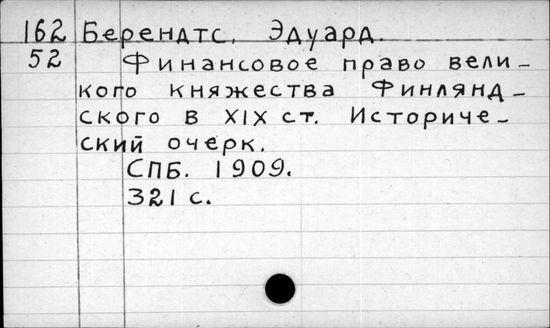 162 Берендтс, Эдуард.
52 Финансовое право вели-
кого княжества Финлянд-
ского в XIX ст. Историче-
ский очерк.
СПБ. 1909.
321 с.